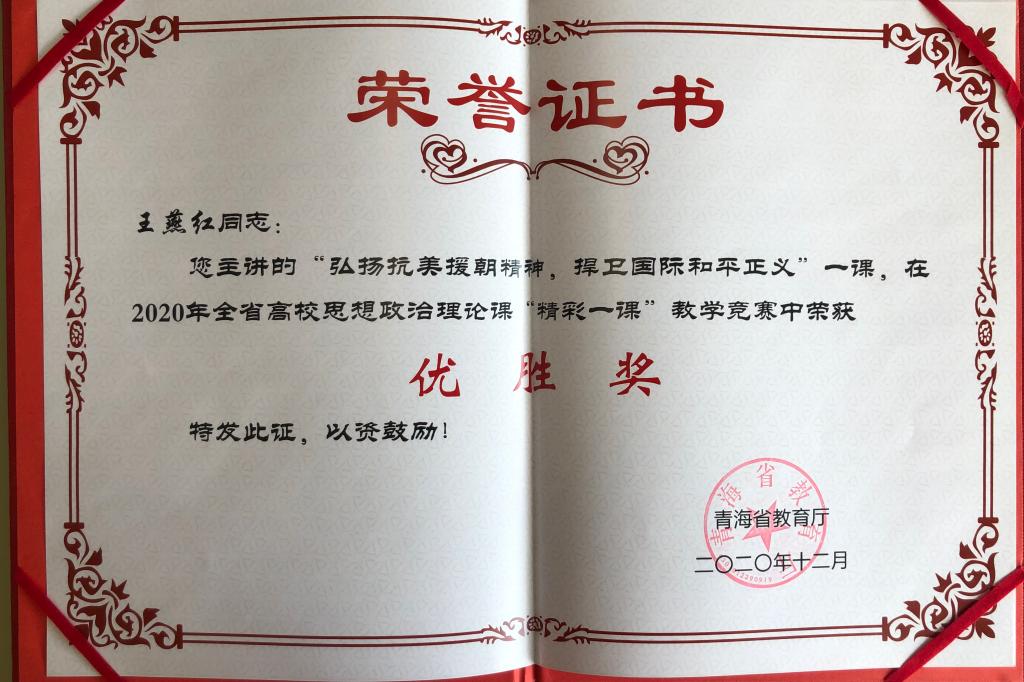 荣誉证书
王燕红同志：
您主讲的“弘扬抗美援朝精神，捍卫国际和平正义”一课，在
2020年全省高校思想政治理论课“精彩一课”教学竞赛中荣获
优胜奖
特发此证，以资鼓励！
青海省教育厅
青海省教育厅
二〇二〇年十二月